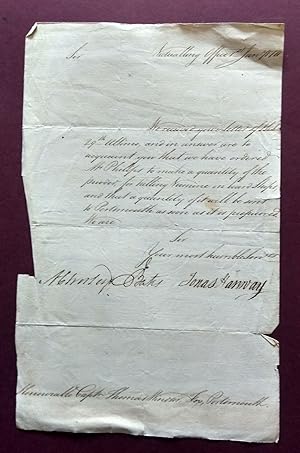 Sir Victualling Office 1st Jany
We received your letter of the
29th Ultimo, and in answer are to
acquaint you that we have ordered
Mr Philips to make a quantity of the
powder for killing Vermine in board Ships
and that a quantity of it will be sent
to Portsmouth as soon as it is prepared
We are
Sir
Your most humble
Bates Jonas Hanway
Honourable Captn Thomas Portsmouth